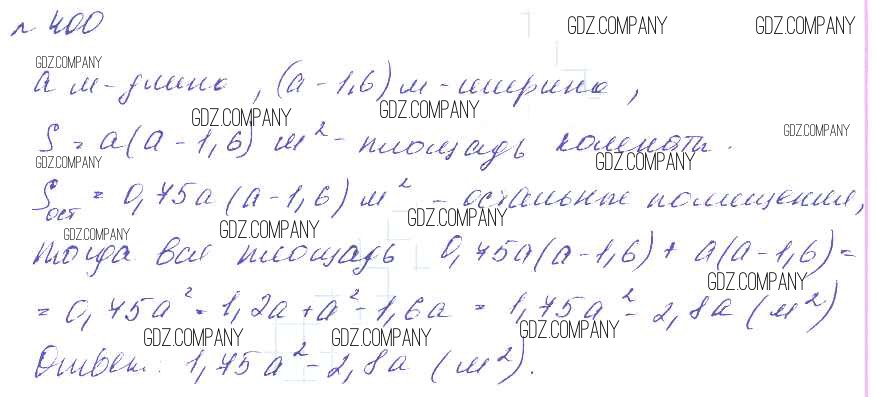 № 400
GDZ.COMPANY GDZ.COMPANY
GDZ.COMPANY
a м - длина, (a - 1,6) м - ширина,
GDZ.COMPANY GDZ.COMPANY
S = a(a - 1,6) м² - площадь комнаты.
GDZ.COMPANY
GDZ.COMPANY GDZ.COMPANY
Sост = 0,75a (a - 1,6) м² - остальные помещения,
GDZ.COMPANY GDZ.COMPANY GDZ.COMPANY
тогда вся площадь 0,75a(a - 1,6) + a(a - 1,6) =
GDZ.COMPANY
= 0,75a² - 1,2a + a² - 1,6a = 1,75a² - 2,8a (м²)
GDZ.COMPANY GDZ.COMPANY GDZ.COMPANY
Ответ: 1,75a² - 2,8a (м²).